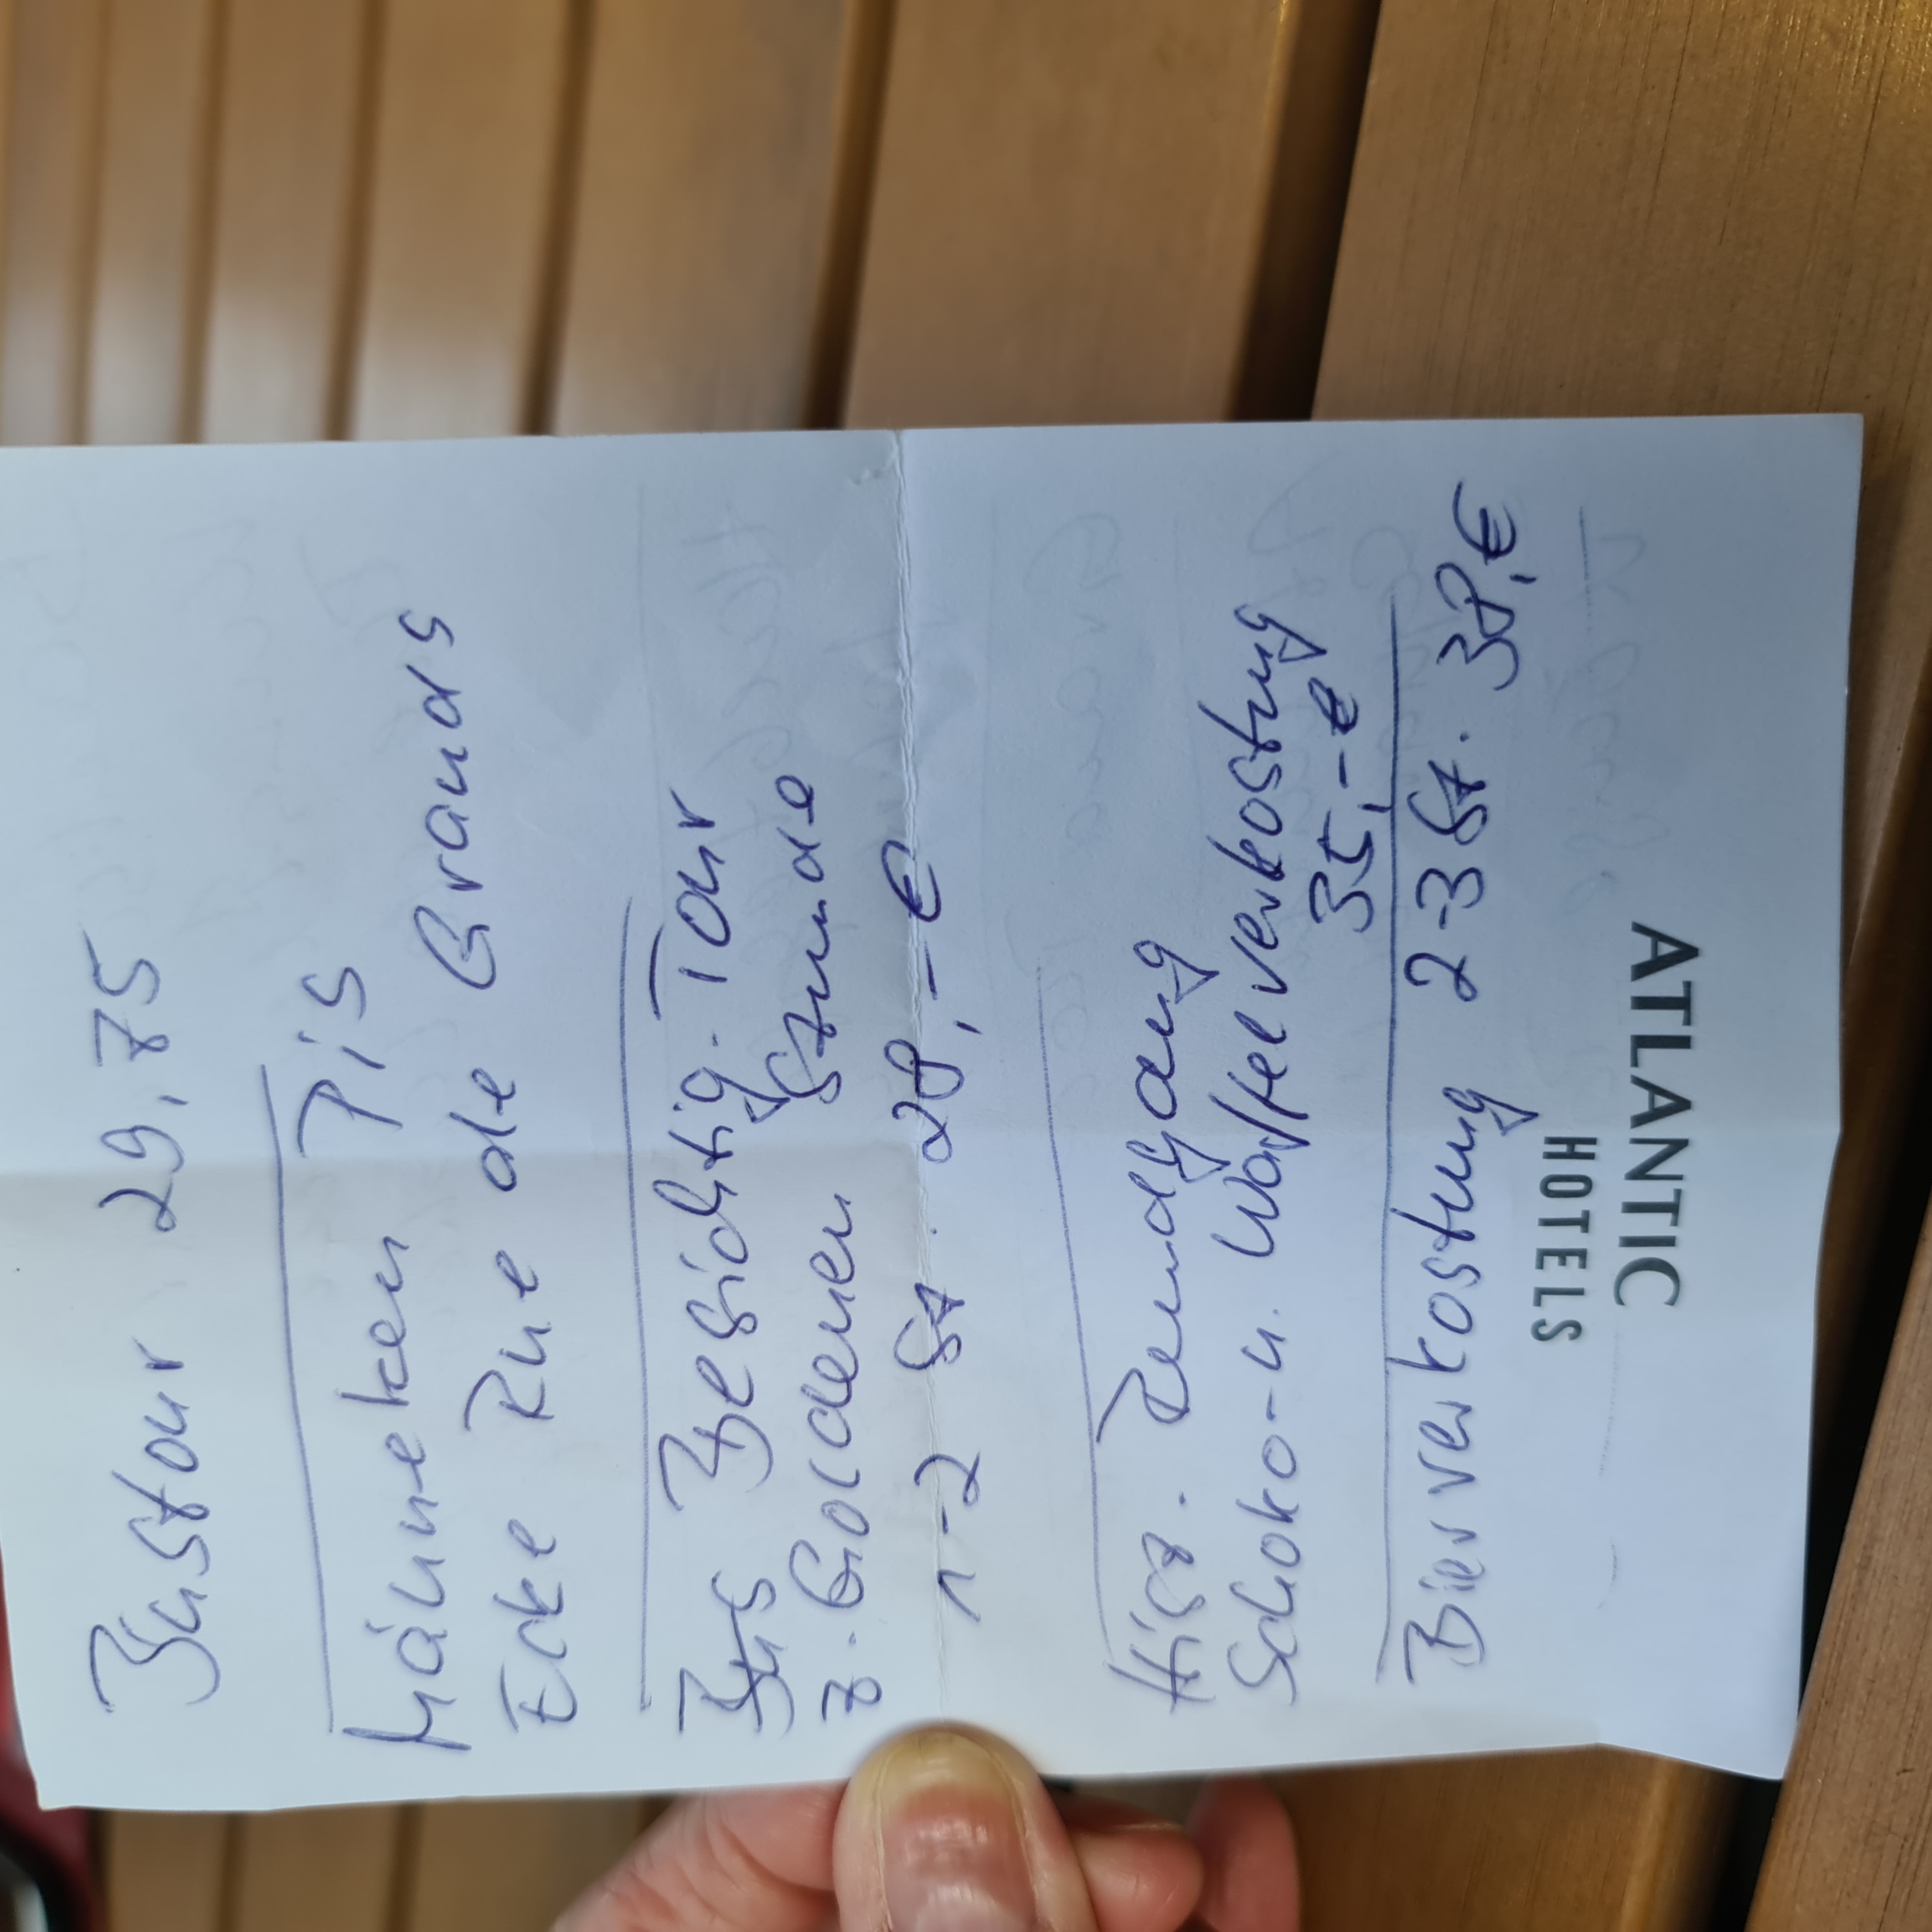 Bustour 29,75
Männeken Pis
Ecke Rue de Grands
Bus Besichtig. Tour
z. Goldenen Stunde
1-2 St. 28,-€
Hist. Rundgang
Schoko- u. Waffelverkostung
35,-€
Bierverkostung 2-3 St. 38,€
ATLANTIC
HOTELS